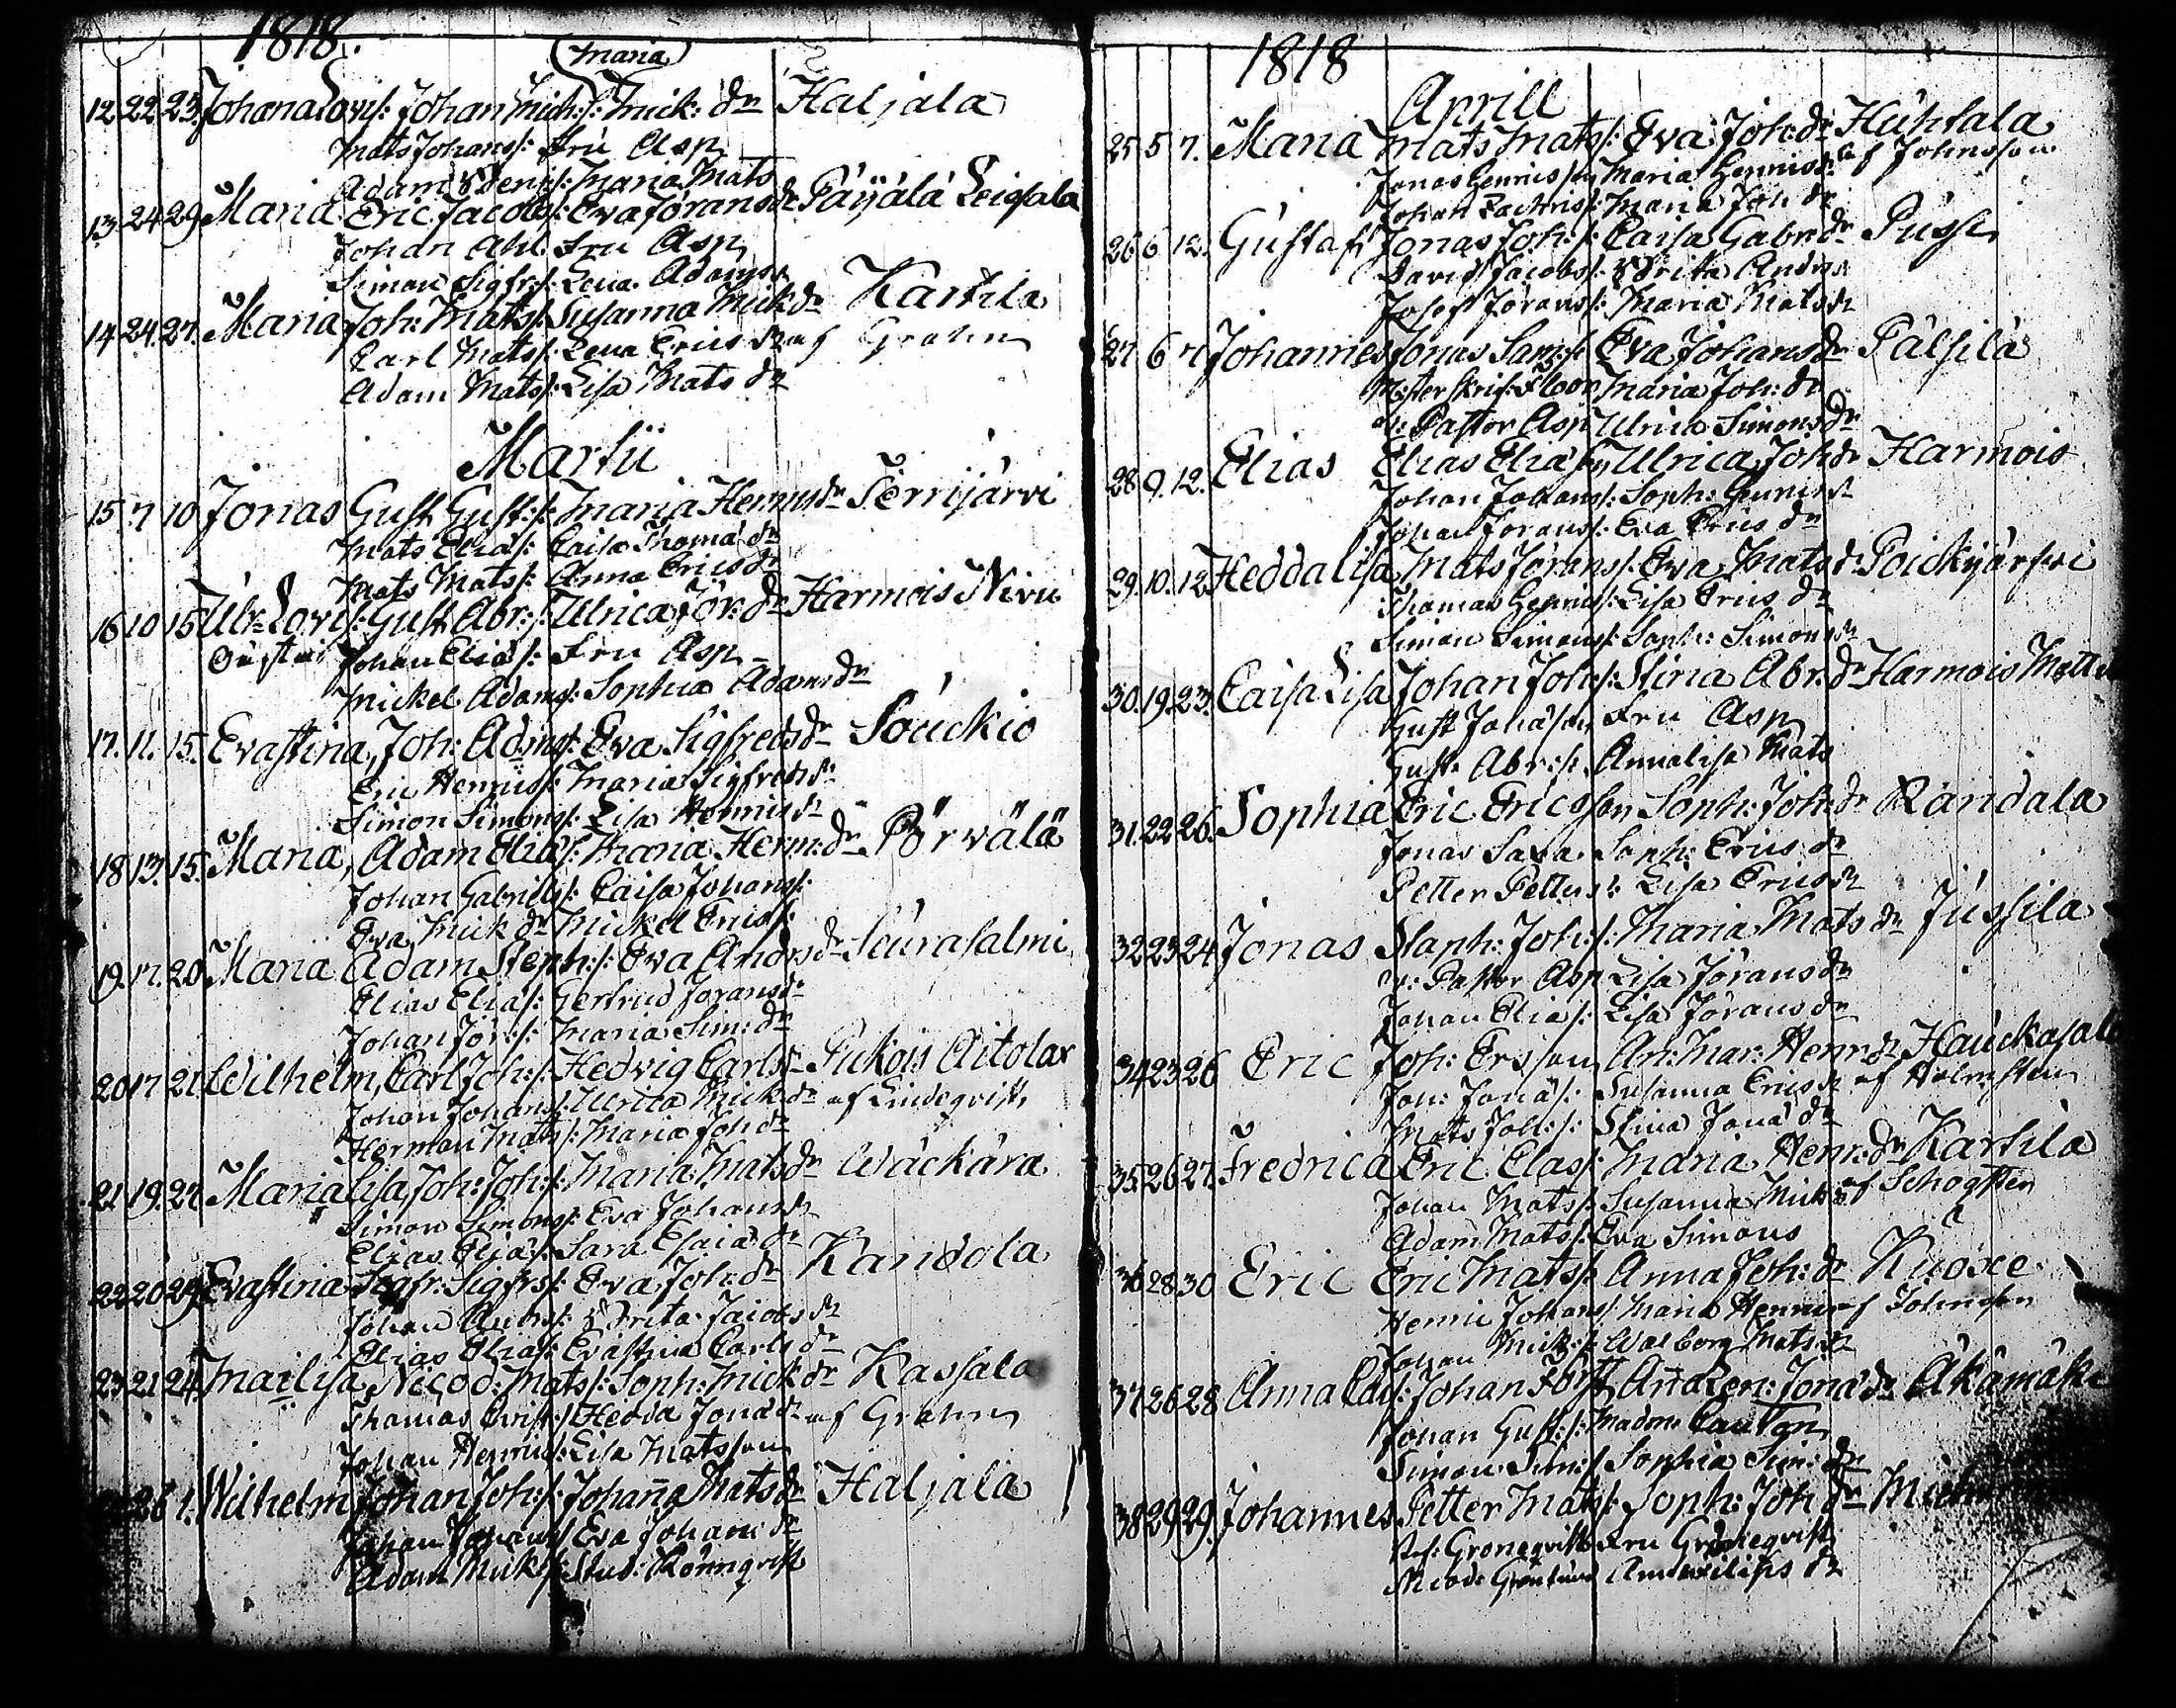 1818.
(Maria)
12 22 23. Johana Lovis: Johan Mich:s: Mick: dr Haljala
Mats Johans: Fru Asp
Adam Mats
13. 24 29 Maria Eric Jacobs: Eva Jöransdr Päijälä Seigala
Johan Ahl. Fru Asp
Simon Sigfrs: Lena Adams
14 24. 27. Maria Joh: Mats: Susanna Mickdr Kartila
Carl Mats: Lena Erics dr af Grahn
Adam Mats: Lisa Mats dr
Martii
15 7 10 Jonas Gust Gust:s: Maria Henricsdr Terrijärvi
Mats Elias: Caisa Thomä dr
Mats Mats: Anna Erics dr
16 10 15 Ulr: Lovis: Gust Abr:s: Ulrica Jör: dr Harmois Nivu
Gustav Johan Elias: Fru Asp
Mickel Adams: Sophia Adams dr
17. 11. 15. Evastina, Joh: Adms: Eva Sigfredsdr Souckio
Eric Henrics: Maria Sigfreds dr
Simon Simons: Lisa Henrics dr
18 13. 15. Maria, Adam Elias: Maria Henr: dr Pörvälä
Johan Gabriels: Caisa Johans:
Eva Mick dr Mickel Erics:
19. 17. 20 Maria Adam Steph:s: Eva Andrsdr Seurasalmi
Elias Elias: Gertrud Jörans dr
Johan Jör:s: Maria Sim: dr
20 17 21 Wilhelm, Carl Joh:s: Hedvig Carlsdr Pukois Aitolax
Johan Johans: Ulrica Mick dr af Lindeqvist
Herman Mats: Maria Joh dr
21 19. 22 Marialisa, Joh: Joh:s: Maria Mats dr Wäckärä
Simon Simons: Eva Johans dr
Elias Elias: Sara Esaiä dr
22 20 29 Evastina Sigfr: Sigfrs: Eva Joh: dr Kandola
Johan Anders: Brita Jacobs dr
Elias Elias: Evastina Carls dr
23 21 24 Majlisa Nicod: Mats: Soph: Mick dr Kassala
Thomas Christ: Hedda Jonä dr af Grahn
Johan Henrics: Lisa Matsson
26 1. Wilhelm Johan Joh:s: Johana Mats dr Haljala
Johan Johans: Eva Johans dr
Adam Micks: Stud: Rönnqvist
1818
Aprill
25 5 7. Maria Mats Mats: Eva Joh: dr Huhtala
Jonas Henricsson Maria Henrics dr af Johnsson
Johan Zachris: Maria Joh dr
26 6 12. Gustaf Jonas Joh:s: Caisa Gabr: dr Pussi
David Jacobs: Brita Andrs
Josef Jörans: Maria Mats dr
27 6 7 Johannes Jonas Sams: Eva Johans dr Pälsilä
Mster skrif: Floor Maria Joh: dr
v: Pastor Asp Ulrica Simons dr
28 9. 12. Elias Elias Eliasson Ulrica Joh dr Harmois
Johan Johans: Soph: Henrics dr
Johan Jörans: Eva Erics dr
29. 10. 12 Heddalisa Mats Jörans: Eva Mats dr Poickijärfvi
Thomas Henrics: Lisa Erics dr
Simon Simons: Soph: Simons dr
30. 19. 23. Caisa Lisa Johan Johs: Stina Abr. dr Harmois
Gust Jonäson Fru Asp
Gust Abr:s: Annalisa Mats
31. 22 26. Sophia Eric Ericsson Soph: Joh: dr Randala
Jonas Saxa. Soph: Erics dr
Petter Petters: Lisa Erics dr
32 23 24 Jonas Staph: Joh:s: Maria Mats dr Jussila
v: Pastor Asp Lisa Jörans dr
Johan Elias: Lisa Jörans dr
34 23 26 Eric Joh: Ersson An: Mar: Henr dr
Joh: Jonäs: Susanna Erics dr af Holmsten
Mats Joh:s: Stina Jonä dr
35 26 27. Fredrica Eric Clas: Maria Henr: dr Kartila
Johan Mats: Susanna Mick dr af Schogsten
Adam Mats: Eva Simons
36 28 30 Eric Eric Mats: Anna Joh: dr Kuoxe
Henric Johans: Maria Henrics af Johnsson
Johan Mick:s: Walborg Mats dr
37 26 28 Anna Cais: Johan Förstt Ana Len: Jonä dr Äkämäki
Johan Gust:s: Madme
Simon Sim:s: Sophia Sim: dr
38 29 29. Johannes Petter Mats: Soph: Joh dr
Ref: Groneqvist Fru Groneqvist